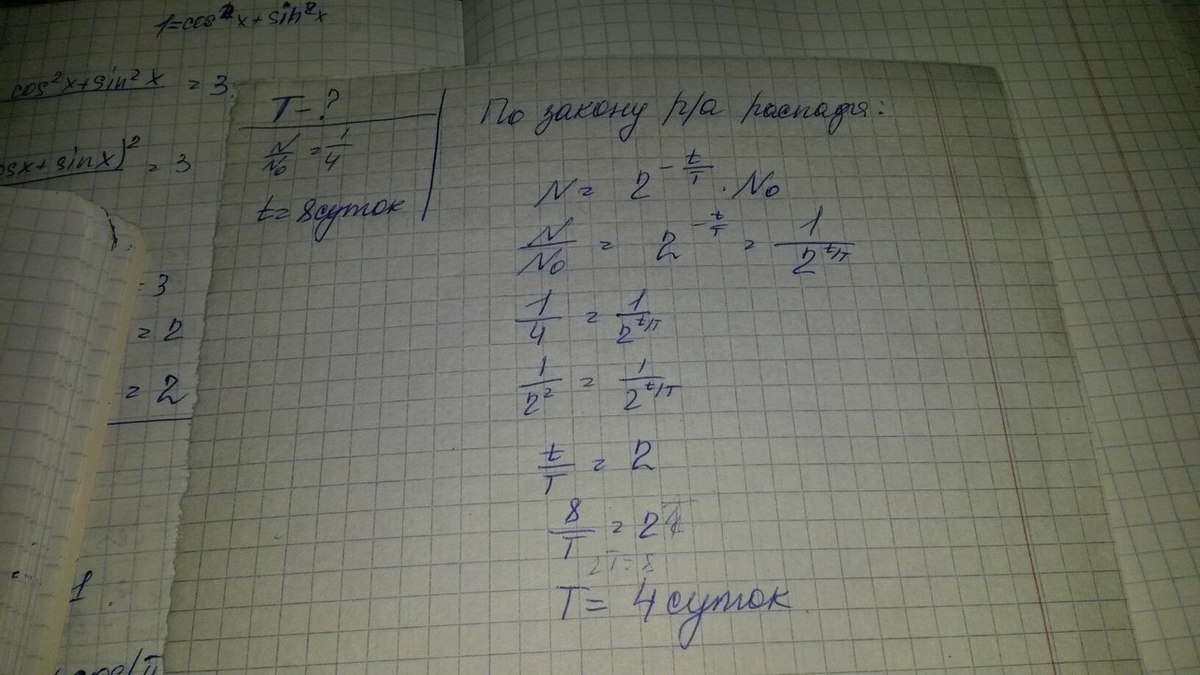 1=cos²x+sin²x
cos²x+sin²x = 3
cosx+sinx)² = 3
- 3
= 2
= 2
1
T-?
N/N₀ = 1/4
t=8суток
По закону р/а распада:
N= 2^(-t/T) · N₀
N/N₀ = 2^(-t/T) = 1/2^(t/T)
1/4 = 1/2^(t/T)
1/2² = 1/2^(t/T)
t/T = 2
8/T = 2
2T=8
T= 4суток